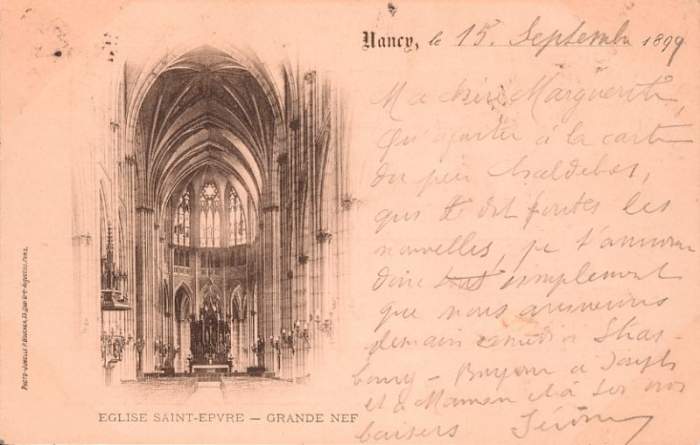 Nancy, le 15. Septembre 1899
Ma chère Marguerite,
Qu'ajouter à la carte
du père
qui te dit toutes les
nouvelles, je t'annonce
donc tout simplement
que nous arriverons
demain samedi à Stras-
bourg - Bonjour à Joseph
et à Maman et à toi nos
baisers Jérôme
EGLISE SAINT-EPVRE — GRANDE NEF